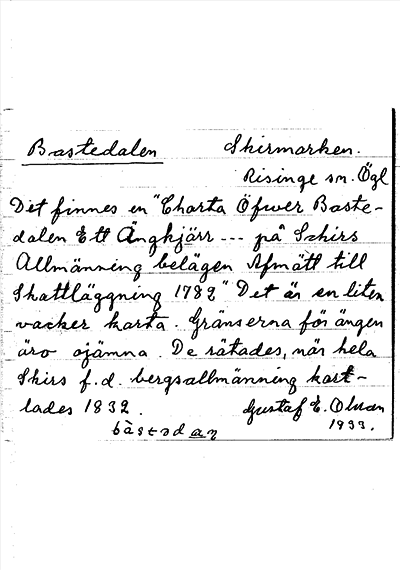 Bastedalen Skirmarken.
Risinge sn. Ögl
Det finnes en "Charta Öfwer Baste-
dalen Ett Ängkjärr --- på Schirs
Allmänning belägen Afmätt till
Skattläggning 1782" Det är en liten
vacker karta. Gränserna för ängen
äro ojämna. De rätades, när hela
Skirs f.d. bergsallmänning kart-
lades 1832. Gustaf E. Olsson
1933.
bàstədan